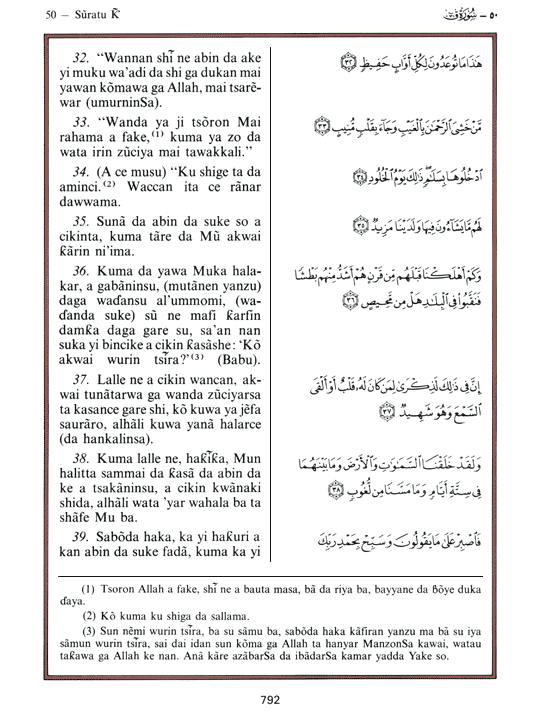 50 – Sũratu Ƙ̃
٥٠ – سُورَةُ قٓ
32. “Wannan shĩ ne abin da ake
yi muku wa’adi da shi ga dukan mai
yawan kõmawa ga Allah, mai tsarẽ-
war (umurninSa).
33. “Wanda ya ji tsõron Mai
rahama a fake,⁽¹⁾ kuma ya zo da
wata irin zũciya mai tawakkali.”
34. (A ce musu) “Ku shige ta da
aminci.⁽²⁾ Waccan ita ce rãnar
dawwama.
35. Sunã da abin da suke so a
cikinta, kuma tãre da Mũ akwai
ƙãrin ni’ima.
36. Kuma da yawa Muka hala-
kar, a gabãninsu, (mutãnen yanzu)
daga waɗansu al’ummomi, (wa-
ɗanda suke) sũ ne mafi ƙarfin
damƙa daga gare su, sa’an nan
suka yi bincike a cikin ƙasãshe: ‘Kõ
akwai wurin tsĩra?’⁽³⁾ (Babu).
37. Lalle ne a cikin wancan, ak-
wai tunãtarwa ga wanda zũciyarsa
ta kasance gare shi, kõ kuwa ya jẽfa
saurãro, alhãli kuwa yanã halarce
(da hankalinsa).
38. Kuma lalle ne, haƙĩƙa, Mun
halitta sammai da ƙasã da abin da
ke a tsakãninsu, a cikin kwãnaki
shida, alhãli wata ’yar wahala ba ta
shãfe Mu ba.
39. Sabõda haka, ka yi haƙuri a
kan abin da suke fadã, kuma ka yi
هَٰذَا مَا تُوعَدُونَ لِكُلِّ أَوَّابٍ حَفِيظٍ ﴿٣٢﴾
مَّنْ خَشِيَ الرَّحْمَٰنَ بِالْغَيْبِ وَجَاءَ بِقَلْبٍ مُّنِيبٍ ﴿٣٣﴾
ادْخُلُوهَا بِسَلَامٍ ۖ ذَٰلِكَ يَوْمُ الْخُلُودِ ﴿٣٤﴾
لَهُم مَّا يَشَاءُونَ فِيهَا وَلَدَيْنَا مَزِيدٌ ﴿٣٥﴾
وَكَمْ أَهْلَكْنَا قَبْلَهُم مِّن قَرْنٍ هُمْ أَشَدُّ مِنْهُم بَطْشًا
فَنَقَّبُوا فِي الْبِلَادِ هَلْ مِن مَّحِيصٍ ﴿٣٦﴾
إِنَّ فِي ذَٰلِكَ لَذِكْرَىٰ لِمَن كَانَ لَهُ قَلْبٌ أَوْ أَلْقَى
السَّمْعَ وَهُوَ شَهِيدٌ ﴿٣٧﴾
وَلَقَدْ خَلَقْنَا السَّمَاوَاتِ وَالْأَرْضَ وَمَا بَيْنَهُمَا
فِي سِتَّةِ أَيَّامٍ وَمَا مَسَّنَا مِن لُّغُوبٍ ﴿٣٨﴾
فَاصْبِرْ عَلَىٰ مَا يَقُولُونَ وَسَبِّحْ بِحَمْدِ رَبِّكَ
(1) Tsoron Allah a fake, shĩ ne a bauta masa, bã da riya ba, bayyane da ɓõye duka
ɗaya.
(2) Kõ kuma ku shiga da sallama.
(3) Sun nẽmi wurin tsĩra, ba su sãmu ba, sabõda haka kãfiran yanzu ma bã su iya
sãmun wurin tsĩra, sai dai idan sun kõma ga Allah ta hanyar ManzonSa kawai, watau
taƙawa ga Allah ke nan. Anã kãre azãbarSa da ibãdarSa kamar yadda Yake so.
792